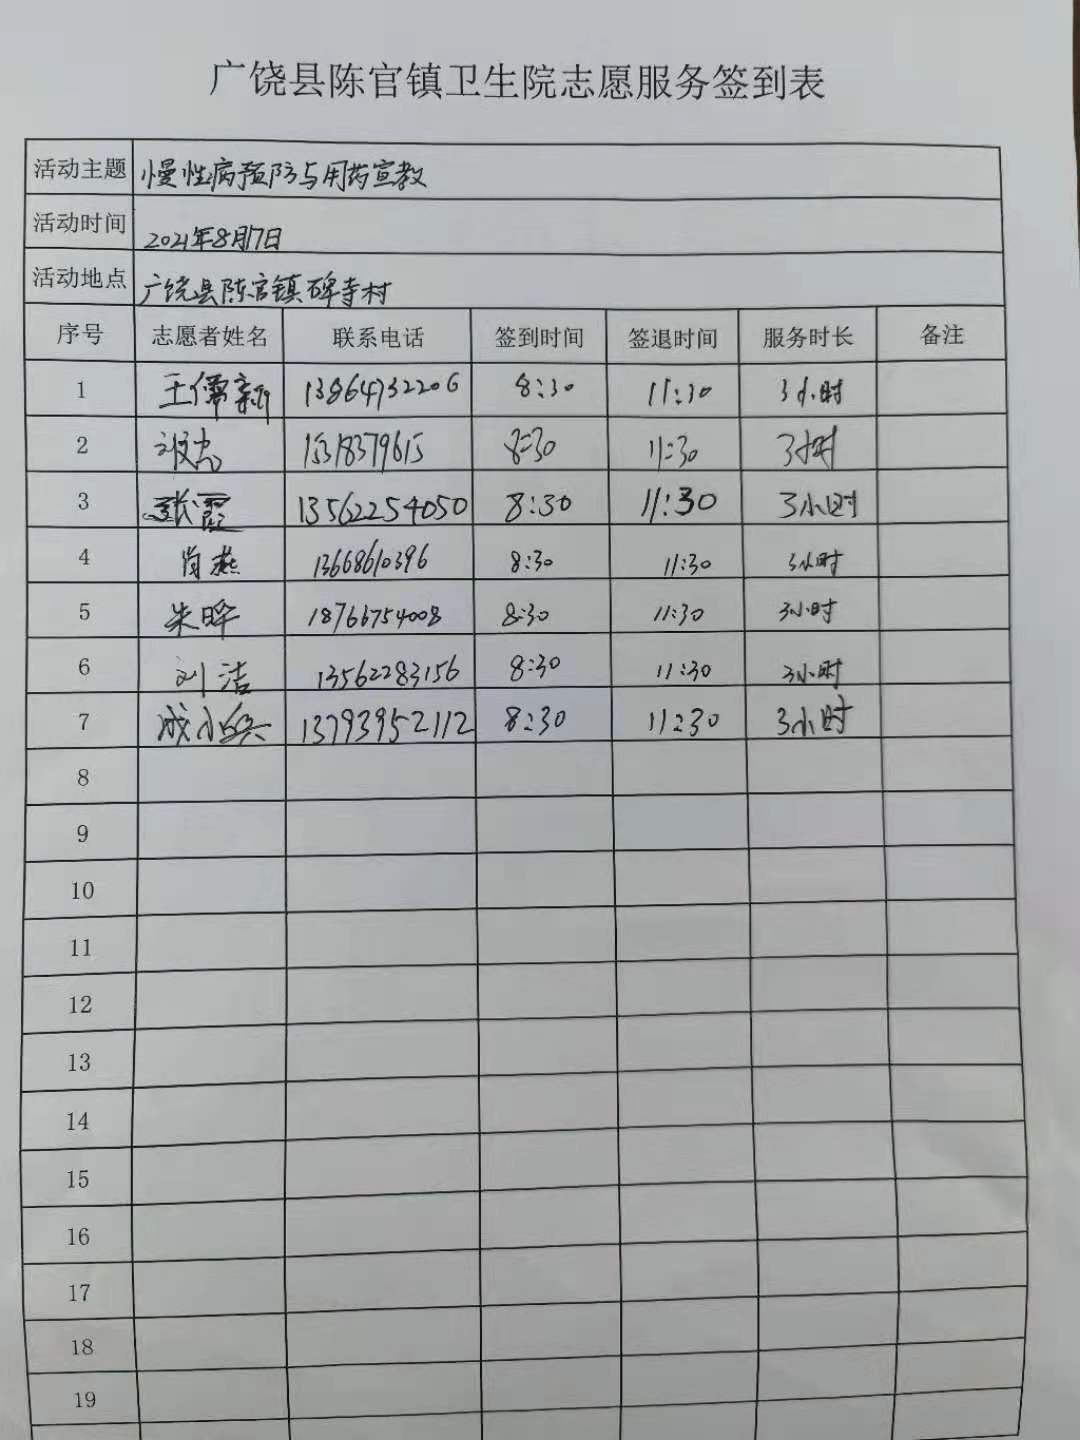 广饶县陈官镇卫生院志愿服务签到表
活动主题 慢性病预防与用药宣教
活动时间 2021年8月17日
活动地点 广饶县陈官镇碑寺村
序号 志愿者姓名 联系电话 签到时间 签退时间 服务时长 备注
1 王儒新 13864732206 8:30 11:30 3小时
2 8:30 11:30 3小时
3 张霞 13562254050 8:30 11:30 3小时
4 肖燕 13668610396 8:30 11:30 3小时
5 朱晖 18766754008 8:30 11:30 3小时
6 刘洁 13562283156 8:30 11:30 3小时
7 成小 13793952112 8:30 11:30 3小时
8
9
10
11
12
13
14
15
16
17
18
19